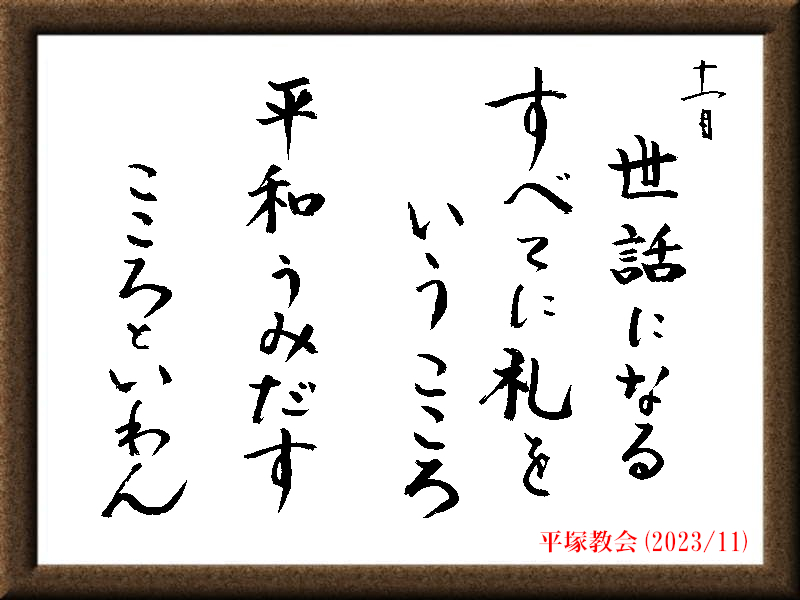 十一月
世話になる
すべてに礼を
いうこころ
平和うみだす
こころといわん
平塚教会(2023/11)